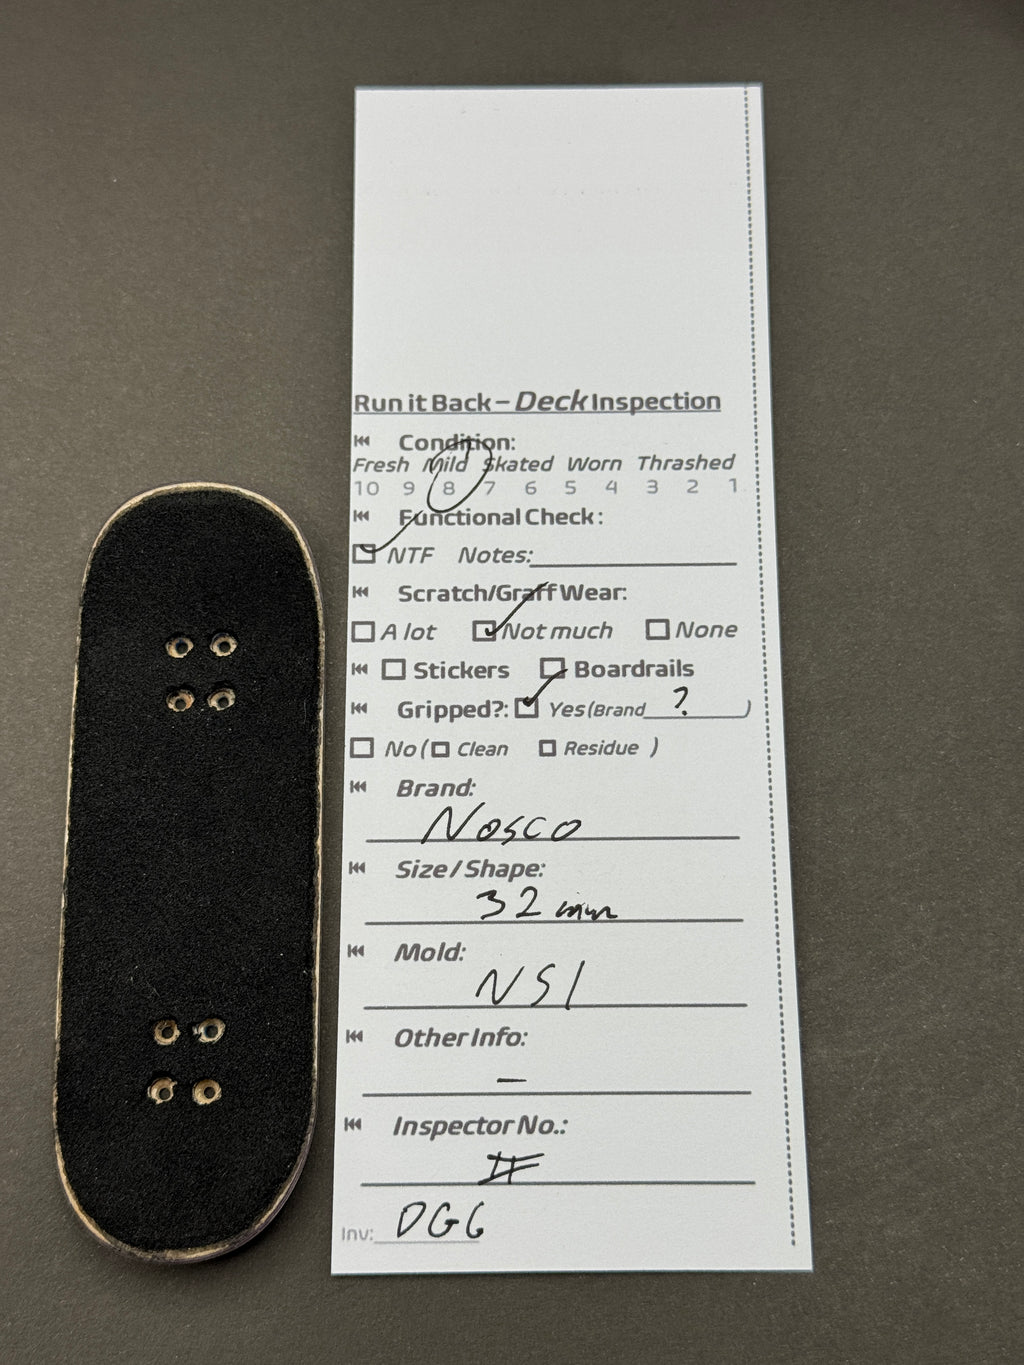 Run it Back – Deck Inspection
Condition:
Fresh Mild Skated Worn Thrashed
10 9 8 7 6 5 4 3 2 1
Functional Check:
NTF Notes:
Scratch/Graff Wear:
A lot Not much None
Stickers Boardrails
Gripped?: Yes (Brand ? )
No ( Clean Residue )
Brand:
Nosco
Size / Shape:
32 mm
Mold:
NS1
Other Info:
–
Inspector No.:
Inv: